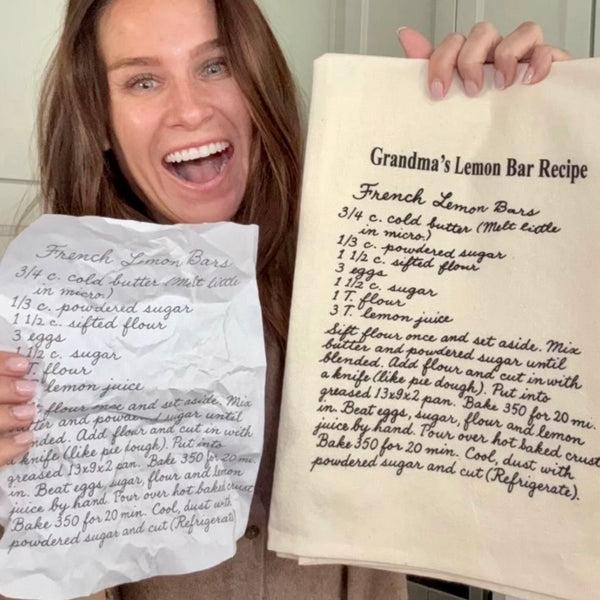 French Lemon Bars
3/4 c. cold butter (Melt little
in micro.)
1/3 c. powdered sugar
1 1/2 c. sifted flour
3 eggs
1 1/2 c. sugar
T. flour
lemon juice
flour once and set aside. Mix
butter and powdered sugar until
nded. Add flour and cut in with
a knife (like pie dough). Put into
greased 13x9x2 pan. Bake 350 for 20 mi
in. Beat eggs, sugar, flour and lemon
juice by hand. Pour over hot baked crust
Bake 350 for 20 min. Cool, dust with
powdered sugar and cut (Refrigerate)
Grandma's Lemon Bar Recipe
French Lemon Bars
3/4 c. cold butter (Melt little
in micro.)
1/3 c. powdered sugar
1 1/2 c. sifted flour
3 eggs
1 1/2 c. sugar
1 T. flour
3 T. lemon juice
Sift flour once and set aside. Mix
butter and powdered sugar until
blended. Add flour and cut in with
a knife (like pie dough). Put into
greased 13x9x2 pan. Bake 350 for 20 mi.
in. Beat eggs, sugar, flour and lemon
juice by hand. Pour over hot baked crust
Bake 350 for 20 min. Cool, dust with
powdered sugar and cut (Refrigerate).